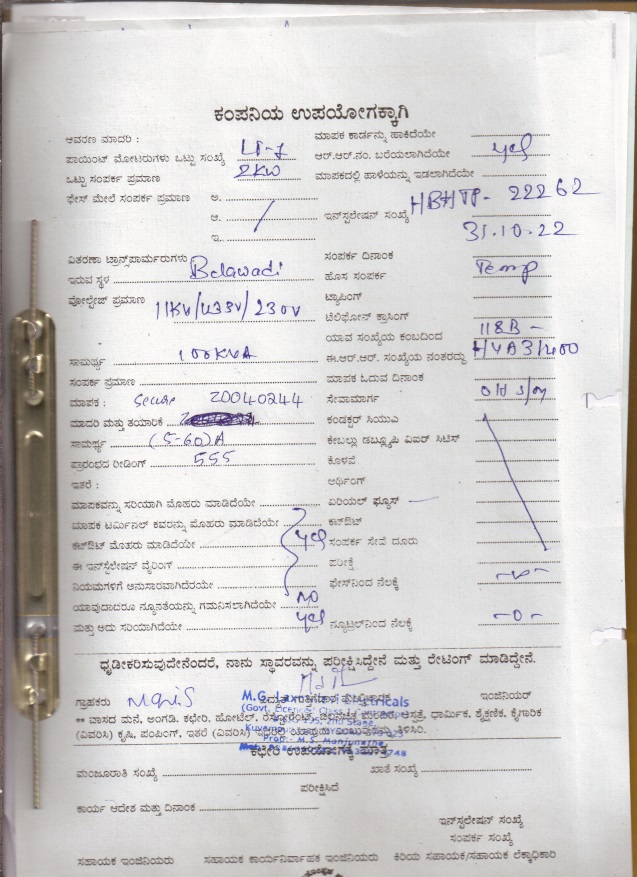 ಕಂಪನಿಯ ಉಪಯೋಗಕ್ಕಾಗಿ
ಆವರಣ ಮಾದರಿ : LT-7 ಮಾಪಕ ಕಾರ್ಡನ್ನು ಹಾಕಿದೆಯೇ
ಪಾಯಿಂಟ್ ಮೋಟರುಗಳು ಒಟ್ಟು ಸಂಖ್ಯೆ ಆರ್.ಆರ್.ನಂ. ಬರೆಯಲಾಗಿದೆಯೇ yes
ಒಟ್ಟು ಸಂಪರ್ಕ ಪ್ರಮಾಣ 2KW ಮಾಪಕದಲ್ಲಿ ಹಾಳೆಯನ್ನು ಇಡಲಾಗಿದೆಯೇ
ಫೇಸ್ ಮೇಲೆ ಸಂಪರ್ಕ ಪ್ರಮಾಣ ಅ.
ಆ. ಇನ್‌ಸ್ಟಲೇಷನ್ ಸಂಖ್ಯೆ HBHTP- 22262
ಇ. 31.10.22
ವಿತರಣಾ ಟ್ರಾನ್ಸ್‌ಪಾರ್ಮರುಗಳು ಸಂಪರ್ಕ ದಿನಾಂಕ
ಇರುವ ಸ್ಥಳ Belawadi ಹೊಸ ಸಂಪರ್ಕ Temp
ವೋಲ್ಟೇಜ್ ಪ್ರಮಾಣ 11KV/433V/230V ಟ್ಯಾಪಿಂಗ್
ಟೆಲಿಫೋನ್ ಕ್ರಾಸಿಂಗ್
ಯಾವ ಸಂಖ್ಯೆಯ ಕಂಬದಿಂದ 118B -
ಸಾಮರ್ಥ್ಯ 100KVA ಈ.ಆರ್.ಆರ್. ಸಂಖ್ಯೆಯ ನಂತರದ್ದು
ಸಂಪರ್ಕ ಪ್ರಮಾಣ ಮಾಪಕ ಓದುವ ದಿನಾಂಕ
ಮಾಪಕ : Secure 20040244 ಸೇವಾಮಾರ್ಗ OH
ಮಾದರಿ ಮತ್ತು ತಯಾರಿಕೆ ಕಂಡಕ್ಟರ್ ಸಿಯುಎ
ಸಾಮರ್ಥ್ಯ (5-60)A ಕೇಬಲ್ಲು ಡಬ್ಲ್ಯೂಪಿ ವಿಐಆರ್ ಸಿಟಿಸ್
ಪ್ರಾರಂಭದ ರೀಡಿಂಗ್ 555 ಕೊಳವೆ
ಇತರೆ : ಅರ್ಥಿಂಗ್
ಮಾಪಕವನ್ನು ಸರಿಯಾಗಿ ಮೊಹರು ಮಾಡಿದೆಯೇ ಏರಿಯಲ್ ಫ್ಯೂಸ್
ಮಾಪಕ ಟರ್ಮಿನಲ್ ಕವರನ್ನು ಮೊಹರು ಮಾಡಿದೆಯೇ ಕಟ್‌ಔಟ್
ಕಟ್‌ಔಟ್ ಮೊಹರು ಮಾಡಿದೆಯೇ yes ಸಂಪರ್ಕ ಸೇವೆ ದೂರು
ಈ ಇನ್‌ಸ್ಟಲೇಷನ್ ವೈರಿಂಗ್ ಪರೀಕ್ಷೆ
ನಿಯಮಗಳಿಗೆ ಅನುಸಾರವಾಗಿದೆರಯೇ ಫೇಸ್‌ನಿಂದ ನೆಲಕ್ಕೆ
ಯಾವುದಾದರೂ ನ್ಯೂನತೆಯನ್ನು ಗಮನಿಸಲಾಗಿದೆಯೇ NO
ಮತ್ತು ಅದು ಸರಿಯಾಗಿದೆಯೇ yes ನ್ಯೂಟ್ರಲ್‌ನಿಂದ ನೆಲಕ್ಕೆ -0-
ಧೃಡೀಕರಿಸುವುದೇನೆಂದರೆ, ನಾನು ಸ್ಥಾವರವನ್ನು ಪರೀಕ್ಷಿಸಿದ್ದೇನೆ ಮತ್ತು ರೇಟಿಂಗ್ ಮಾಡಿದ್ದೇನೆ.
ಗ್ರಾಹಕರು ಇಂಜಿನಿಯರ್
** ವಾಸದ ಮನೆ, ಅಂಗಡಿ, ಕಛೇರಿ, ಹೋಟೆಲ್, ರೆಸ್ಟೋರೆಂಟ್, ಆಸ್ಪತ್ರೆ, ಧಾರ್ಮಿಕ, ಶೈಕ್ಷಣಿಕ, ಕೈಗಾರಿಕ
(ವಿವರಿಸಿ) ಕೃಷಿ, ಪಂಪಿಂಗ್, ಇತರೆ (ವಿವರಿಸಿ) ತಿಳಿಸಿರಿ.
ಕಛೇರಿ ಉಪಯೋಗಕ್ಕೆ ಮಾತ್ರ
ಮಂಜೂರಾತಿ ಸಂಖ್ಯೆ ಖಾತೆ ಸಂಖ್ಯೆ
ಪರೀಕ್ಷಿಸಿದೆ
ಕಾರ್ಯ ಆದೇಶ ಮತ್ತು ದಿನಾಂಕ
ಇನ್‌ಸ್ಟಲೇಷನ್ ಸಂಖ್ಯೆ
ಸಂಪರ್ಕ ಸಂಖ್ಯೆ
ಸಹಾಯಕ ಇಂಜಿನಿಯರು ಸಹಾಯಕ ಕಾರ್ಯನಿರ್ವಾಹಕ ಇಂಜಿನಿಯರು ಕಿರಿಯ ಸಹಾಯಕ/ಸಹಾಯಕ ಲೆಕ್ಕಾಧಿಕಾರಿ